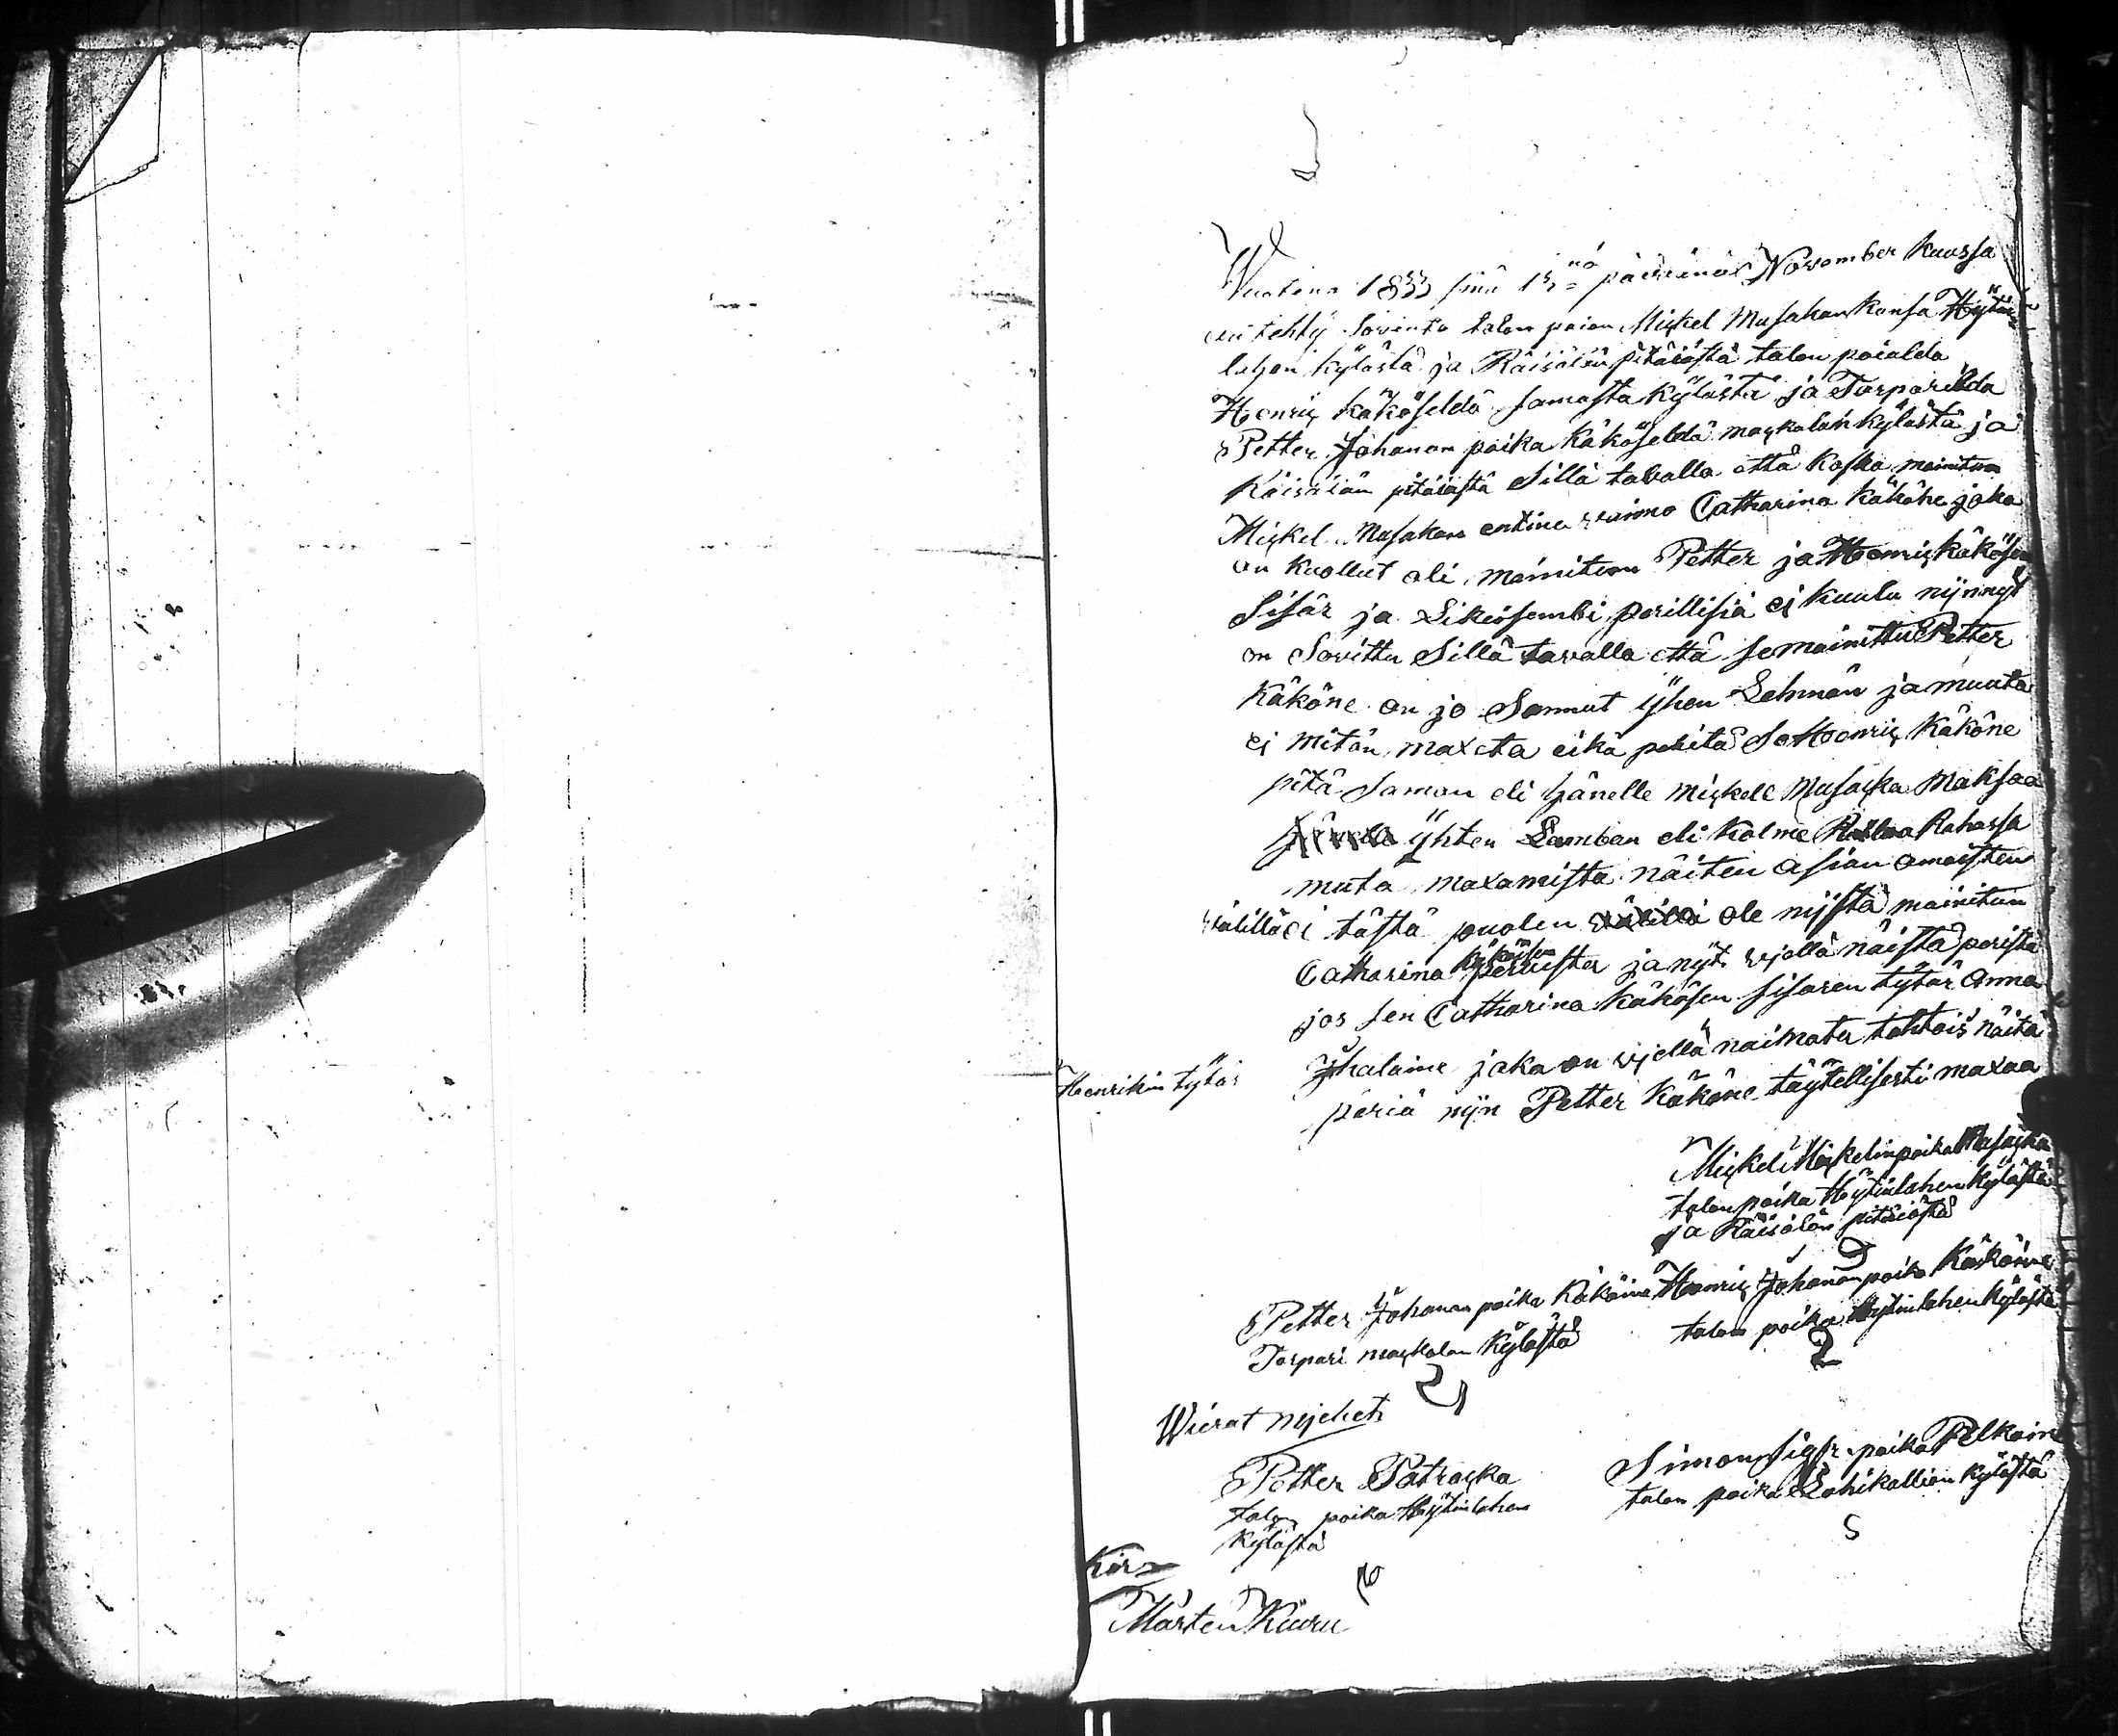 Wuotena 1833 sinä 15nä päiwänä November kuussa
on tehty Sovinto talon poian Mickel Musakan kansa Hÿtin
lahen kylästä ja Räisälän pitäiästä talon poialda
Henric käköseldä samasta kylästä ja Torparilda
Petter Johanan poika käköseldä mackalan kylästä ja
Räisälän pitäiästä Sillä tavalla että koska mainitun
Mickel Musakan entinen waimo Catharina käköne joka
on kuollut oli mainitun Petter ja Henric käkösen
Sisär ja Likeisembi perillisiä ei kuulu nijn nyt
on Sovittu Sillä tavalla että se mainittu Petter
käköne on jo Sannut yhen Lehmän ja muuta
ei mitän maxeta eikä peritä Se Henric käköne
pitä saman eli hänelle mickell Musacka maksaa
yhten Lamban eli kolme Rublaa Rahassa
muta maxamista näiten asian omaisten
wälillä ei tästä puolen ole nijstä mainitun
Catharina käkösen peruista ja nyt wjellä näistä peristä
jos sen Catharina käkösen sisaren tytär Anna
Henrikin tytär Ihalaine joka on wjellä naimatu tahtois näitä
periä nijn Petter käköne täytellisesti maxaa
Mickel Mickelin poika Musacka
talon poika Hytinlahen kylästä
ja Räisälän pitäiästä
Petter Johanan poika käköine Henric Johanan poika Käköine
Torpari mackalan kylästä talon poika Hytinlahen kylästä
Wierat mjehet
Petter Patracka Simon Sigfr. poika Pelkoin
talon poika Hytinlahen talon poika Lahikallion kylästä
kylästä
Kirz
Mårten Kiuru